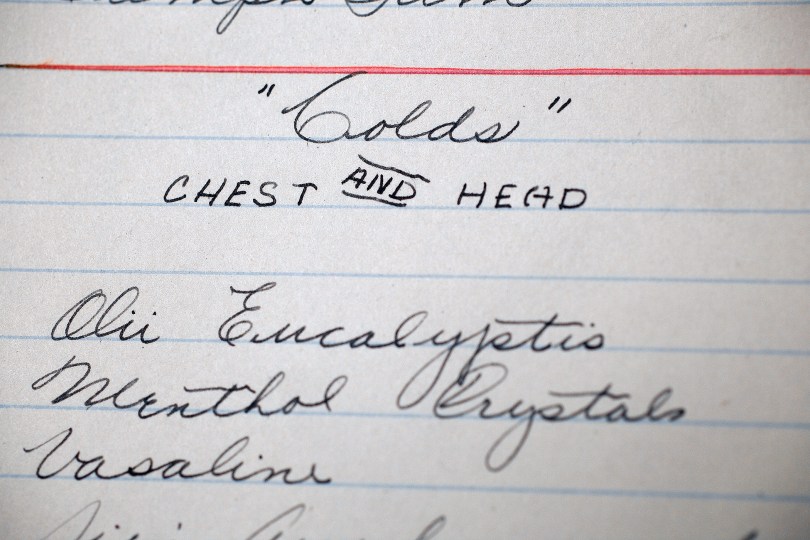 "Colds"
CHEST AND HEAD
Olii Eucalyptis
Menthol Crystals
Vasaline